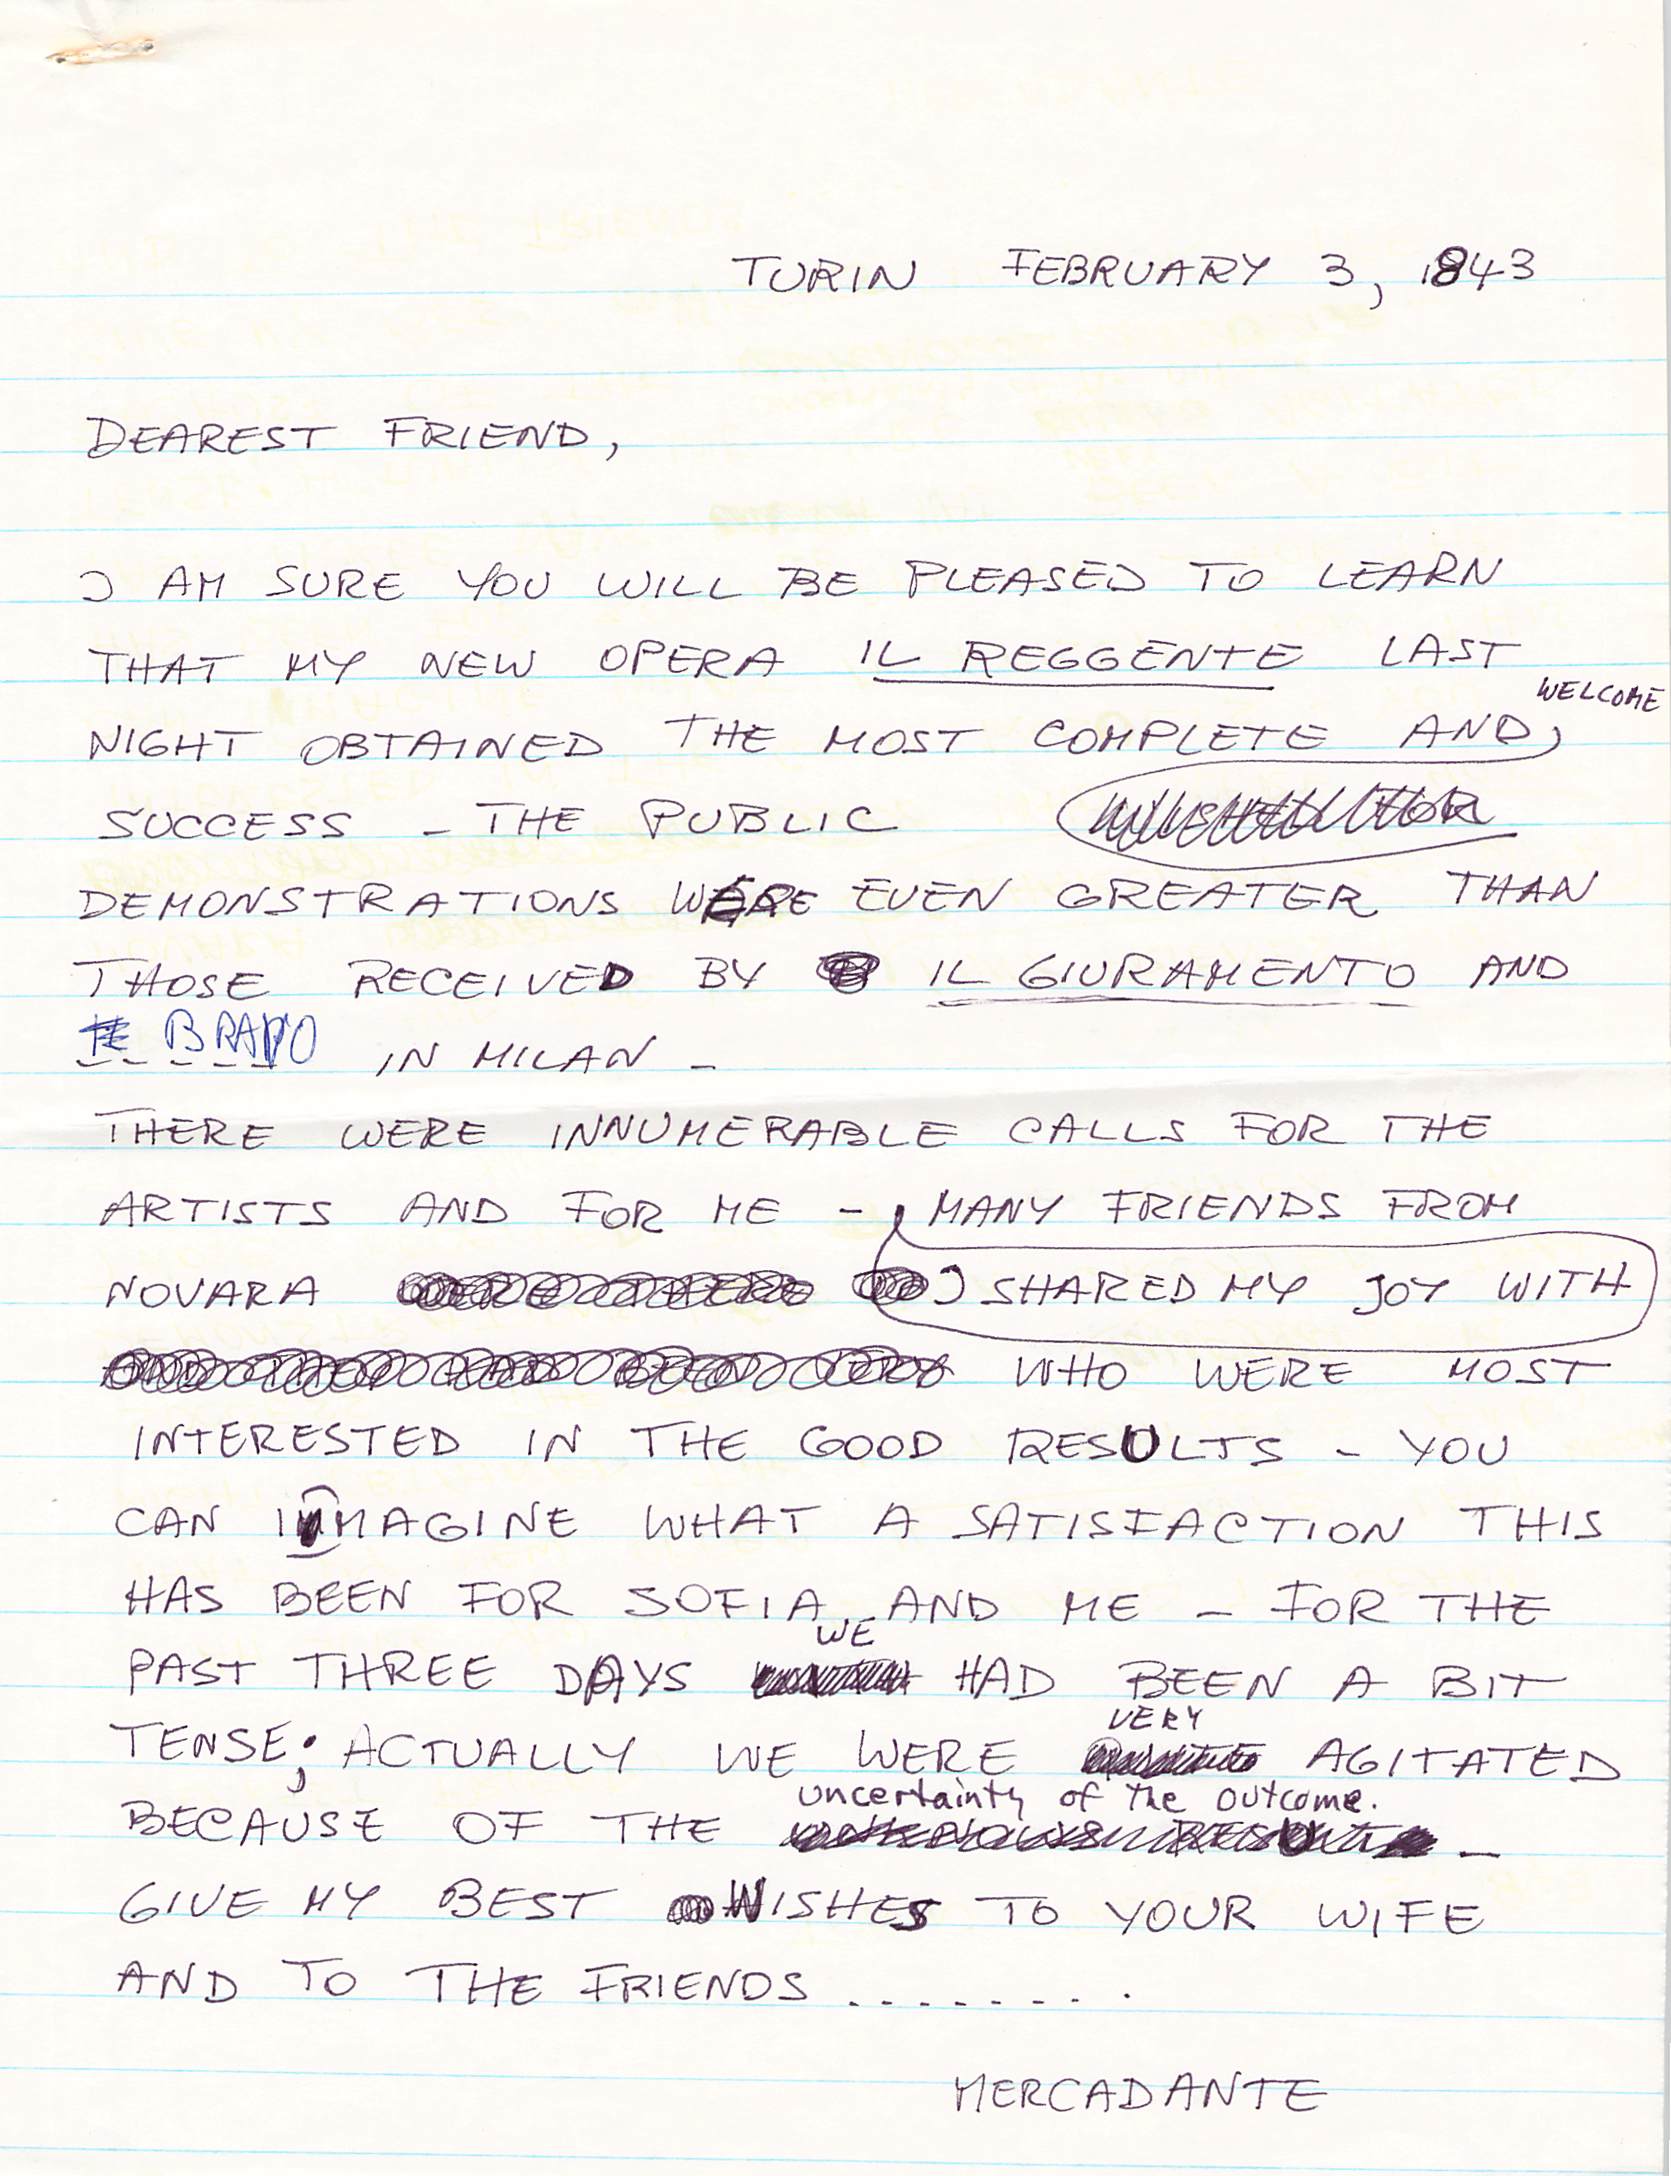 TURIN FEBRUARY 3, 1843
DEAREST FRIEND,
I AM SURE YOU WILL BE PLEASED TO LEARN
THAT MY NEW OPERA IL REGGENTE LAST
WELCOME
NIGHT OBTAINED THE MOST COMPLETE AND
SUCCESS - THE PUBLIC
DEMONSTRATIONS WERE EVEN GREATER THAN
THOSE RECEIVED BY IL GIURAMENTO AND
BRAVO IN MILAN -
THERE WERE INNUMERABLE CALLS FOR THE
ARTISTS AND FOR ME - MANY FRIENDS FROM
NOVARA I SHARED MY JOY WITH
WHO WERE MOST
INTERESTED IN THE GOOD RESULTS - YOU
CAN IMAGINE WHAT A SATISFACTION THIS
HAS BEEN FOR SOFIA AND ME - FOR THE
WE
PAST THREE DAYS HAD BEEN A BIT
VERY
TENSE; ACTUALLY WE WERE AGITATED
uncertainty of the outcome.
BECAUSE OF THE -
GIVE MY BEST WISHES TO YOUR WIFE
AND TO THE FRIENDS ........
MERCADANTE